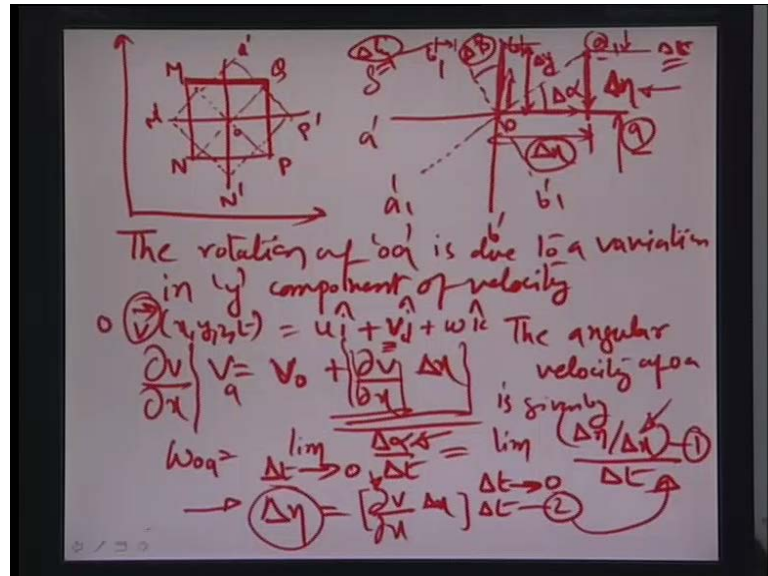 M a' Q
P'
N P
N'
Δη
Δx
a' b'
a'₁ b'₁
The rotation of 'oa' is due to a variation
in 'y' component of velocity
V(x,y,z,t) = uî + vĵ + wk̂ The angular
velocity of oa
is given by
∂v/∂x | Va = Vo + [∂v/∂x Δx]
ωoa = lim Δt→0 Δα/Δt = lim Δt→0 (Δη/Δx)/Δt — ①
→ Δη = [∂v/∂x Δx] Δt — ②